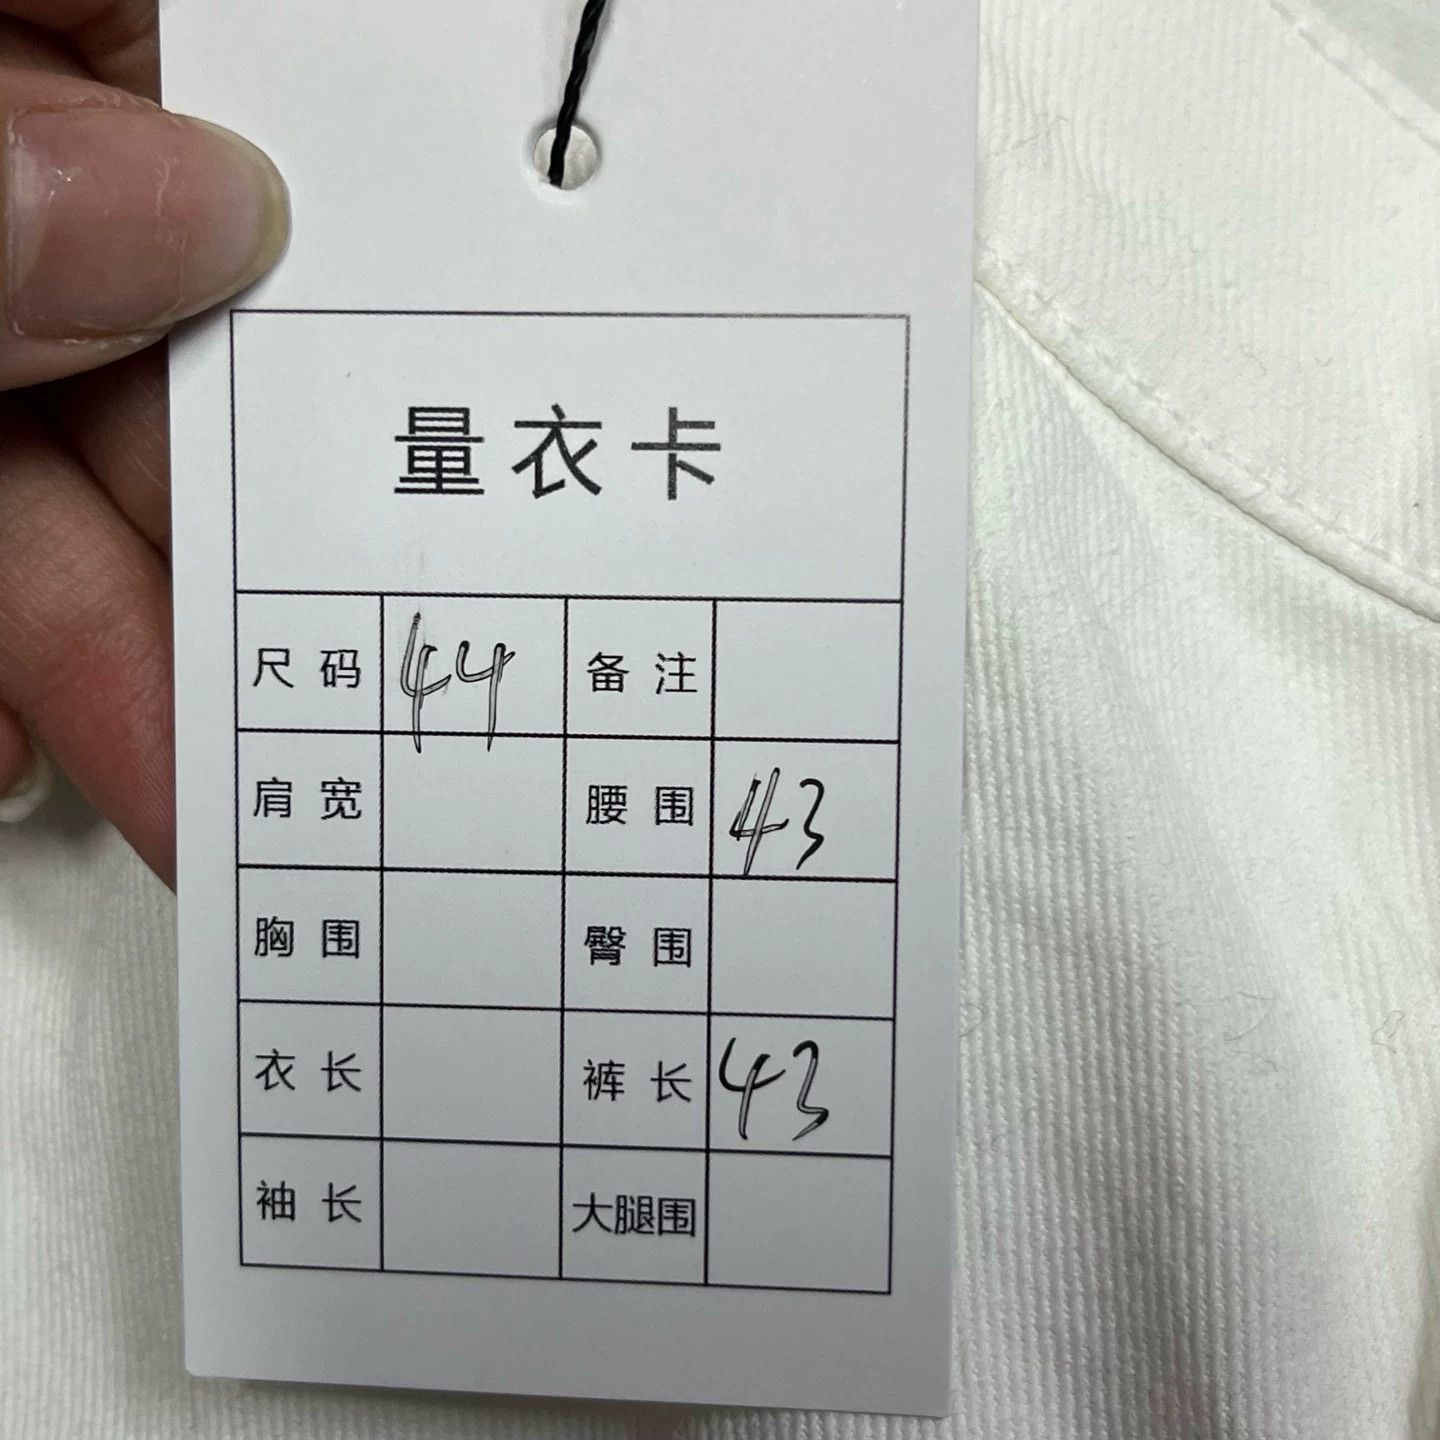 量衣卡
尺码 44 备注
肩宽 腰围 43
胸围 臀围
衣长 裤长 43
袖长 大腿围